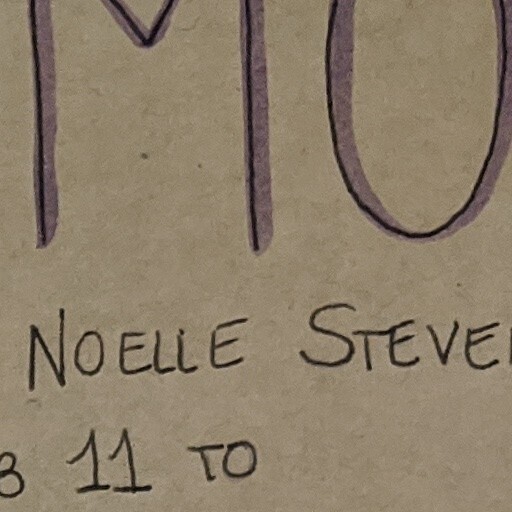 MO
NOELLE STEVE
B 11 TO